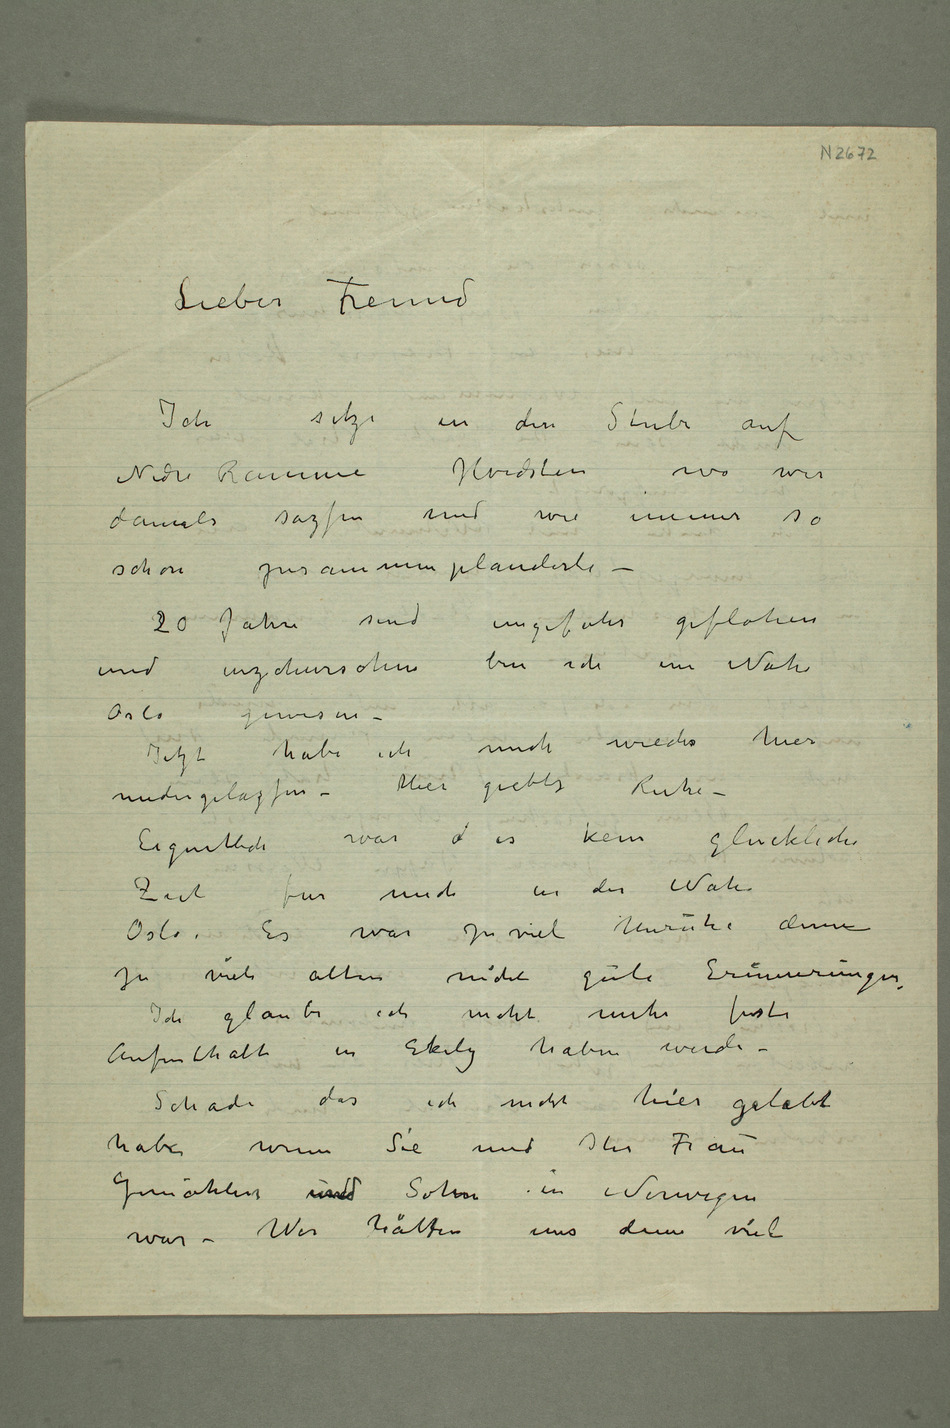 N 2672
Lieber Freund
Ich sitze in der Stube auf
Nedre Ramme Hvidsten wo wir
damals saszen und wie immer so
schön zusammenplauderte –
20 Jahre sind ungefähr geflohen
und inzchwischen bin ich im Nähe
Oslo gewesen –
Jetzt habe ich mich wieder hier
niedergelaszen – Hier giebts Ruhe –
Eigentlich war es kein glückliche
Zeit für mich in der Nähe
Oslo. Es war zu viel Unruhe denn
zu viele alten nicht gute Erinnerungen,
Ich glaube ich nicht mehr feste
Aufenthalt in Ekely haben werde –
Schade das ich nicht hier gelebt
habe wenn Sie und Ihr Frau
Gemählin und Sohn in Norwegen
war – Wir hätten uns denn viel